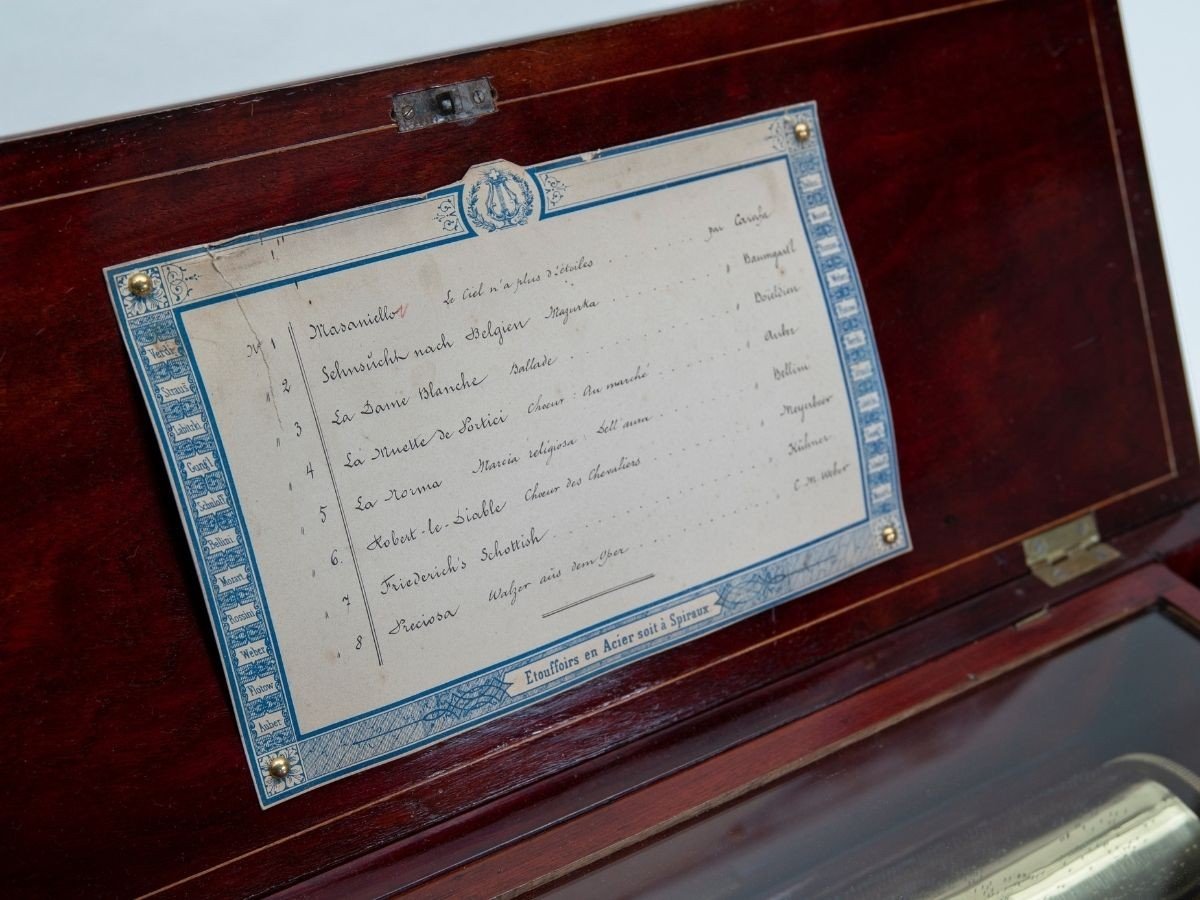 Nº 1 Masaniello Le Ciel n'a plus d'étoiles par Carafa
" 2 Sehnsücht nach Belgien Mazurka " Baumgartl
" 3 La Dame Blanche Ballade " Boieldieu
" 4 La Muette de Portici Choeur: Au marché " Auber
" 5 La Norma Marcia religiosa: Dell'aura " Bellini
" 6. Robert-le-Diable Choeur des Chevaliers " Meyerbeer
" 7 Friederich's Schottish " Kühner
" 8 Preciosa Walzer aüs dem Oper " C. M. Weber
Etouffoirs en Acier soit à Spiraux
Verdi
Strauß
Labitzky
Gung'l
Schuloff
Bellini
Mozart
Rossini
Weber
Flotow
Auber